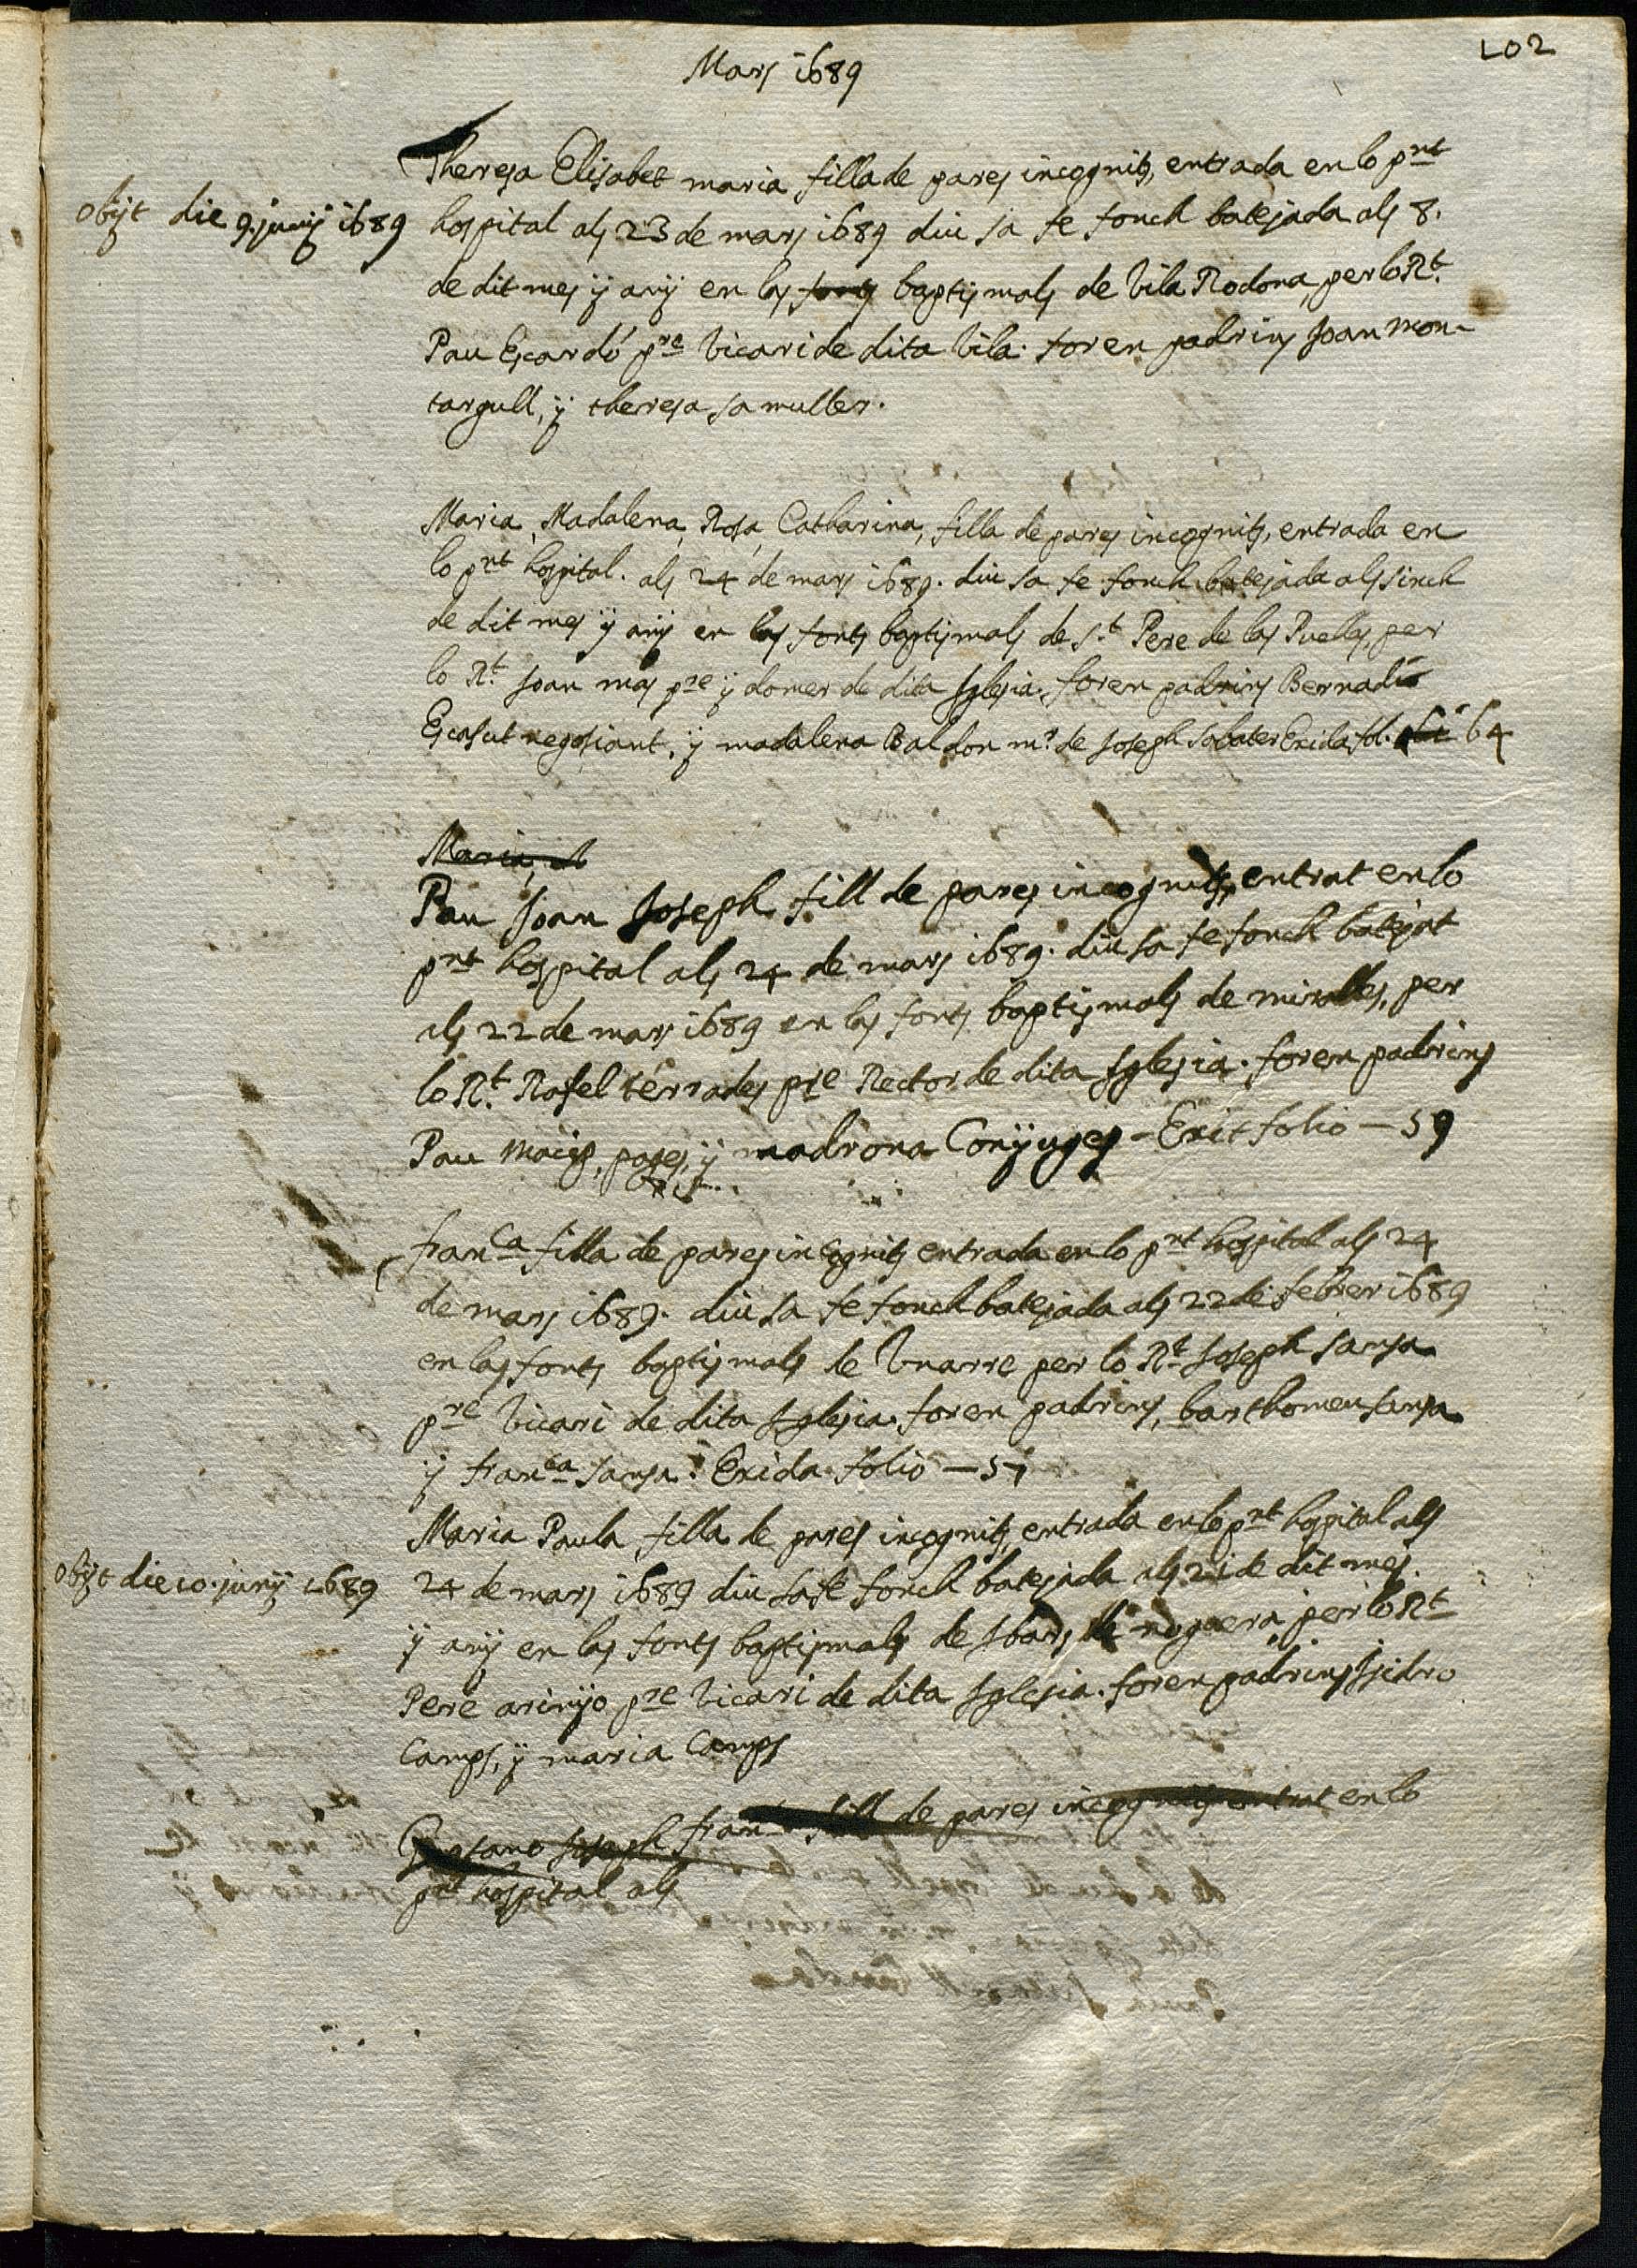 102
Mars 1689
Theresa Elisabet maria filla de pares incognits, entrada en lo pnt
obijt die 9. junij 1689
hospital als 23 de mars 1689 diu sa fe fonch batejada als 8.
de dit mes ÿ anÿ en las fonts baptismals de Vila Rodona, per lo Rt.
Pau Escardó pre Vicari de dita Vila. foren padrins Joan mon-
targull, ÿ theresa sa muller.
Maria, Madalena, Rosa, Catharina, filla de pares incognits, entrada en
lo pnt hospital. als 24 de mars 1689. diu sa fe fonch batejada als sinch
de dit mes ÿ anÿ en las fonts baptismals de St. Pere de las Puellas, per
lo Rt. Joan mas pre ÿ domer de dita Iglesia, foren padrins Bernadí
Escasut negosiant, ÿ madalena Baldon mr. de Joseph Sabater Exida fol. 64
Maria, M
Pau Joan Joseph fill de pares incognits, entrat en lo
pnt hospital als 24 de mars 1689. diu sa fe fonch batejat
als 22 de mars 1689 en las fonts baptismals de miralles, per
lo Rt. Rafel terrades pre Rector de dita Iglesia. foren padrins
Pau macip, pages, ÿ madrona Conÿuges - Exit folio - 59
Franca filla de pares incognits entrada en lo pnt hospital als 24
de mars 1689. diu sa fe fonch batejada als 22 de febrer 1689
en las fonts baptismals de Unarre per lo Rt Joseph Sansa
pre Vicari de dita Iglesia. foren padrins, barthomeu sansa
ÿ franca sansa. Exida folio - 57
Maria Paula filla de pares incognits, entrada en lo pnt hospital als
obijt die 10. junij 1689
24 de mars 1689 diu sa fe fonch batejada als 21 de dit mes
ÿ anÿ en las fonts baptismals de Ibars de noguera per lo Rt
Pere arinÿo pre Vicari de dita Iglesia. foren padrins Isidro
Camps, ÿ maria Camps
Gaetano Joseph fran fill de pares incognits entrat en lo
pnt hospital als